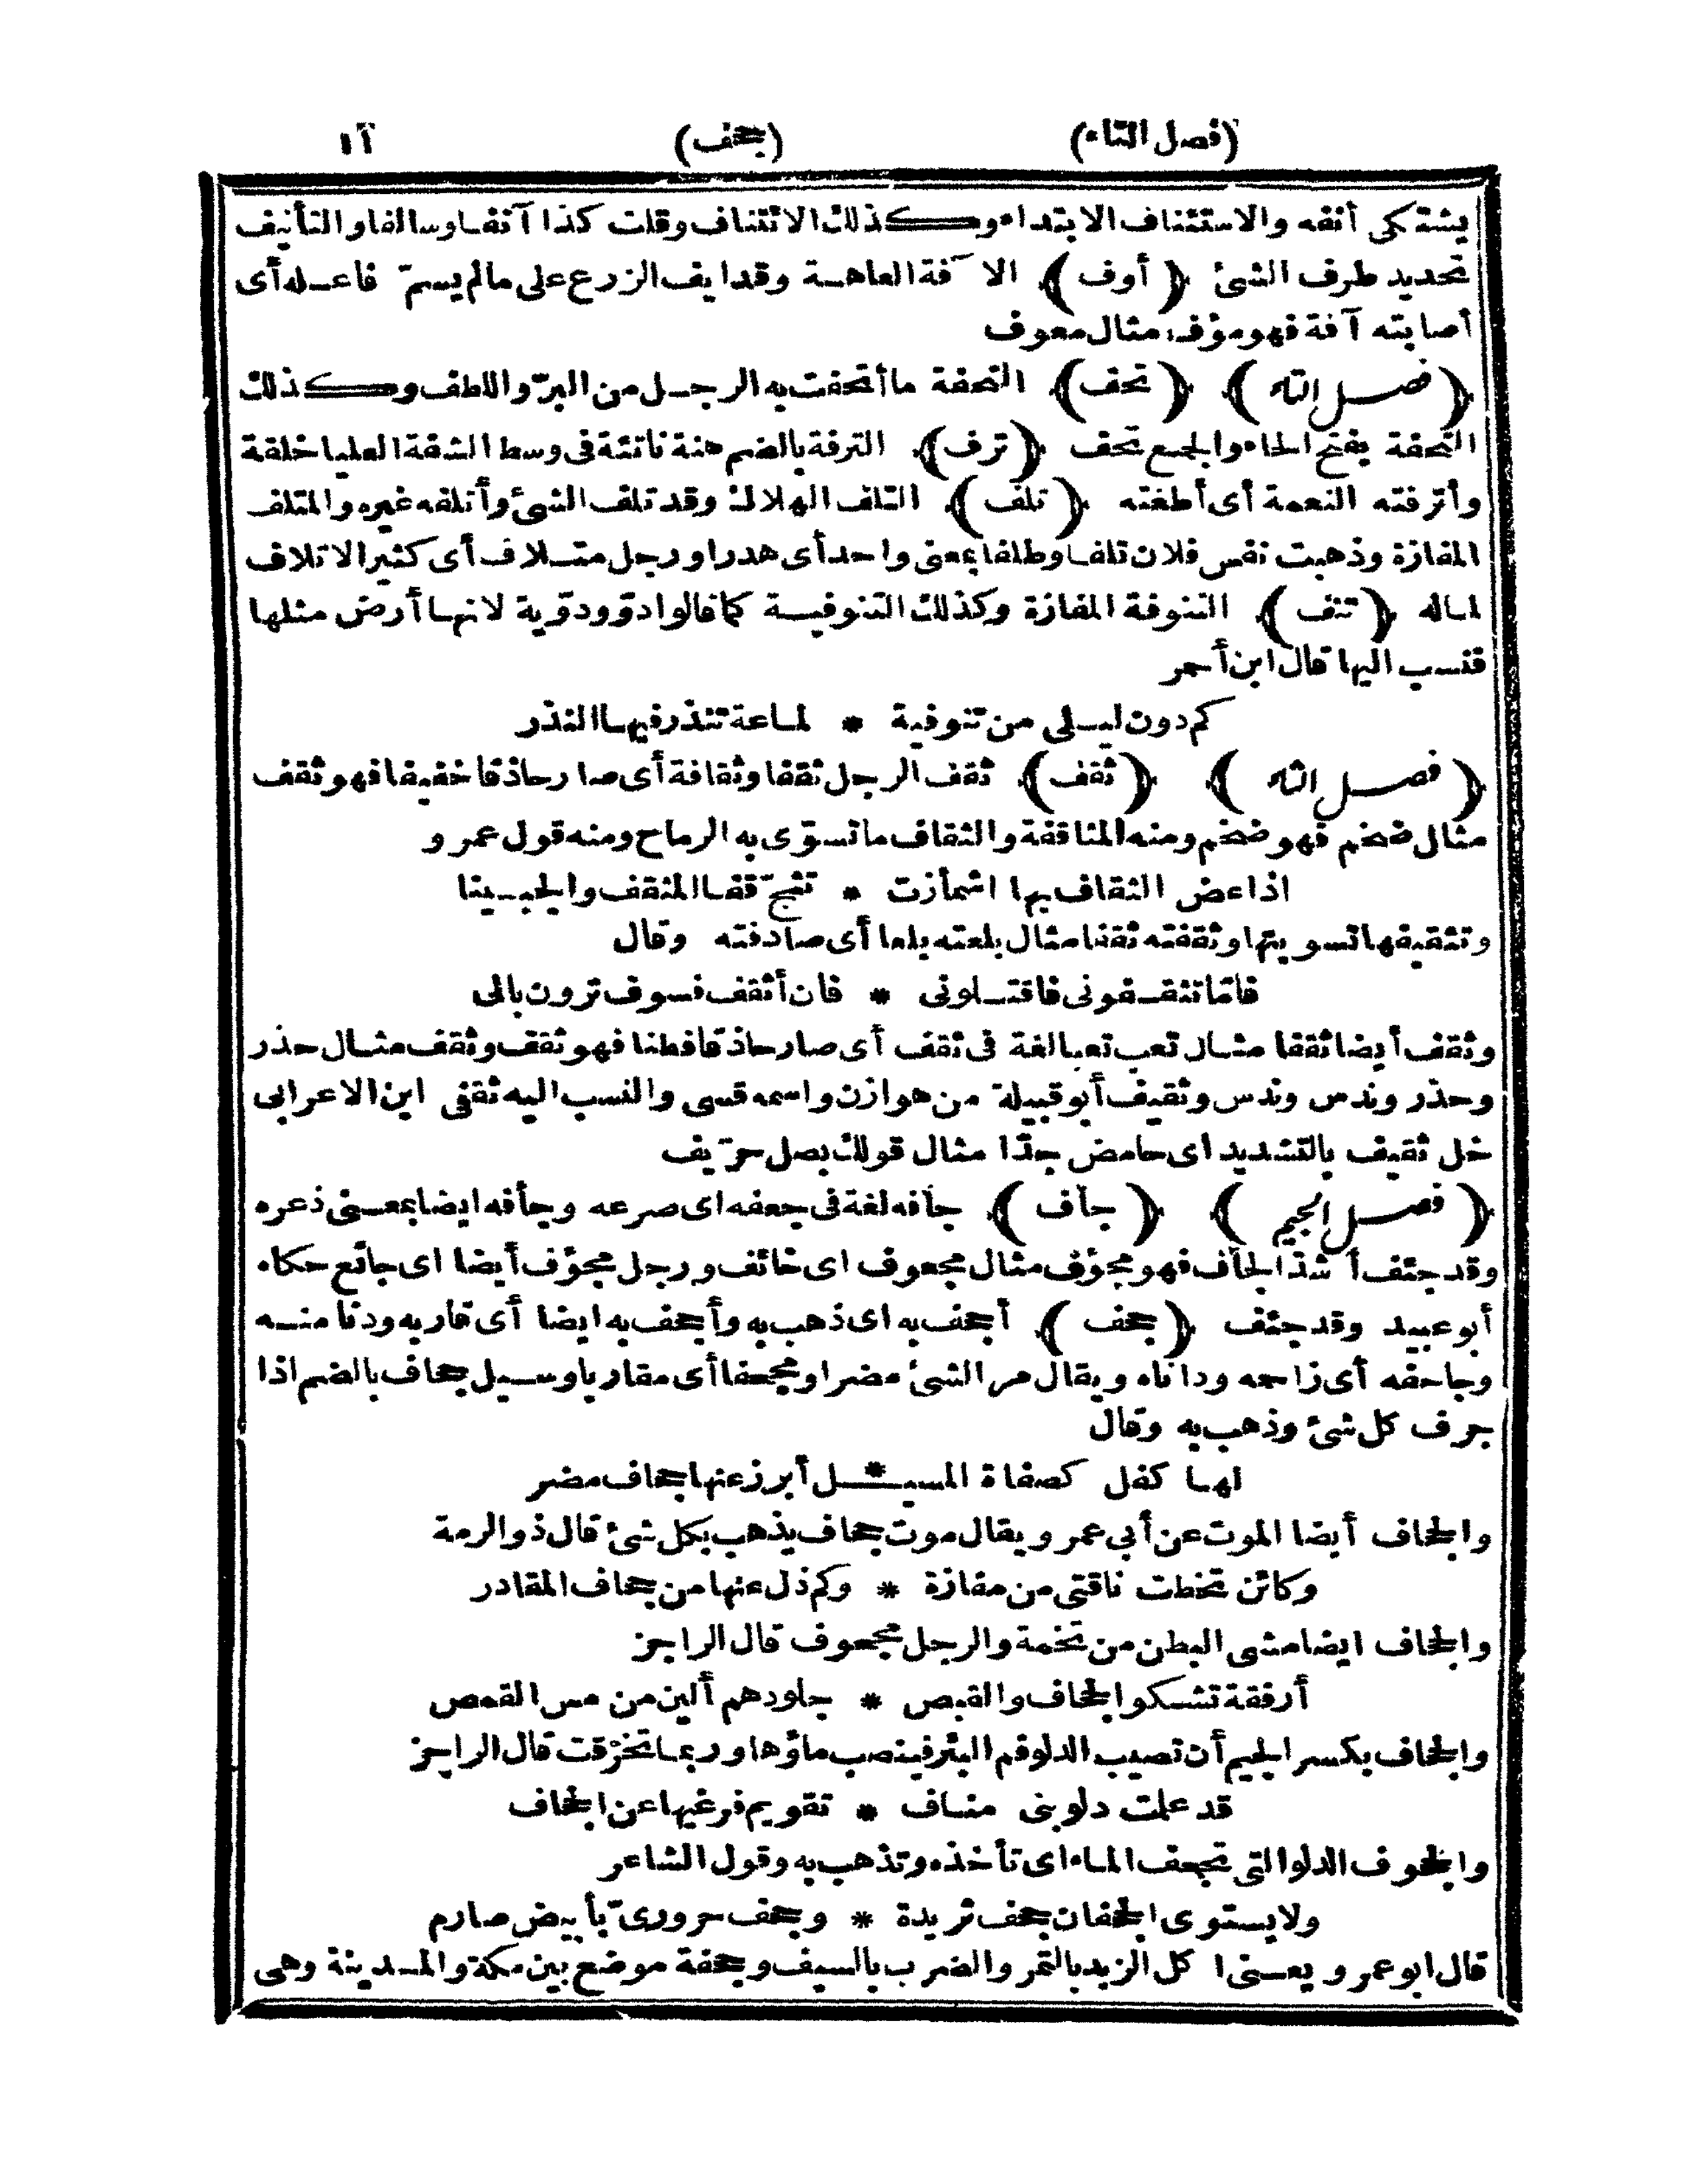 (فصل التاء) (جحف) ١٦
يشتكى أنفه والاستئناف الابتداء وكذلك الائتناف وقلت كذا آنفا وسالفا والتأنيف
تحديد طرف الشئ ﴿ أوف ﴾ الآفة العاهة وقد ايف الزرع على مالم يسمّ فاعله أى
أصابته آفة فهو مؤف مثال معوف
﴿ فصل التاء ﴾ ﴿ تحف ﴾ التحفة ما أتحفت به الرجل من البرّ واللطف وكذلك
التحفة بفتح الحاء والجمع تحف ﴿ ترف ﴾ الترفة بالضم هنة ناتئة فى وسط الشفة العليا خلقة
وأترفته النعمة أى أطغته ﴿ تلف ﴾ التلف الهلاك وقد تلف الشئ وأتلفه غيره والمتلف
المفازة وذهبت نفس فلان تلفا وطلفا بمعنى واحد أى هدرا ورجل متلاف أى كثير الاتلاف
لماله ﴿ تنف ﴾ التنوفة المفازة وكذلك التنوفية كما قالوا دوّ ودوّية لانها أرض مثلها
فنسب اليها قال ابن أحمر
كم دون ليلى من تنوفية * لماعة تنذر فيها النذر
﴿ فصل الثاء ﴾ ﴿ ثقف ﴾ ثقف الرجل ثقفا وثقافة أى صار حاذقا خفيفا فهو ثقف
مثال ضخم فهو ضخم ومنه المثاقفة والثقاف ما تسوّى به الرماح ومنه قول عمرو
اذا عض الثقاف بها اشمأزت * تشجّ قفا المثقف والجبينا
وتثقيفها تسويتها وثقفته ثقفا مثال بلعته بلعا أى صادفته وقال
فامّا تثقفونى فاقتلونى * فان أثقف فسوف ترون بالى
وثقف أيضا ثقفا مثال تعب تعبا لغة فى ثقف أى صار حاذقا فطنا فهو ثقف وثقف مثال حذر
وحذر وندس وندس وثقيف أبو قبيلة من هوازن واسمه قسى والنسب اليه ثقفى ابن الاعرابى
خل ثقيف بالتشديد اى حامض جدّا مثال قولك بصل حرّيف
﴿ فصل الجيم ﴾ ﴿ جأف ﴾ جأفه لغة فى جعفه اى صرعه وجأفه ايضا بمعنى ذعره
وقد جئف أشدّ الجأف فهو مجؤف مثال مجعوف اى خائف ورجل مجؤف أيضا اى جائع حكاه
أبو عبيد وقد جئف ﴿ جحف ﴾ أجحف به اى ذهب به وأجحف به ايضا أى قاربه ودنا منه
وجاحفه أى زاحمه وداناه ويقال مر الشئ مضرا ومجحفا أى مقاربا وسيل جحاف بالضم اذا
جرف كل شئ وذهب به وقال
لها كفل كصفاة المسيل * أبرز عنها جحاف مضر
والجحاف أيضا الموت عن أبى عمر ويقال موت جحاف يذهب بكل شئ قال ذو الرمة
وكائن تخطت ناقتى من مفازة * وكم زل عنها من جحاف المقادر
والجحاف ايضا مشى البطن من تخمة والرجل مجحوف قال الراجز
أرفقة تشكو الجحاف والقبص * جلودهم ألين من مس القمص
والجحاف بكسر الجيم أن تصيب الدلو فم البئر فينصب ماؤها وربما تخرّقت قال الراجز
قد علمت دلو بنى مناف * تقويم فرغيها عن الجحاف
والجحوف الدلو التى تجحف الماء اى تأخذه وتذهب به وقول الشاعر
ولا يستوى الجحفان جحف ثريدة * وجحف حرورىّ بأبيض صارم
قال ابو عمرو يعنى اكل الزبد بالتمر والضرب بالسيف وجحفة موضع بين مكة والمدينة وهى